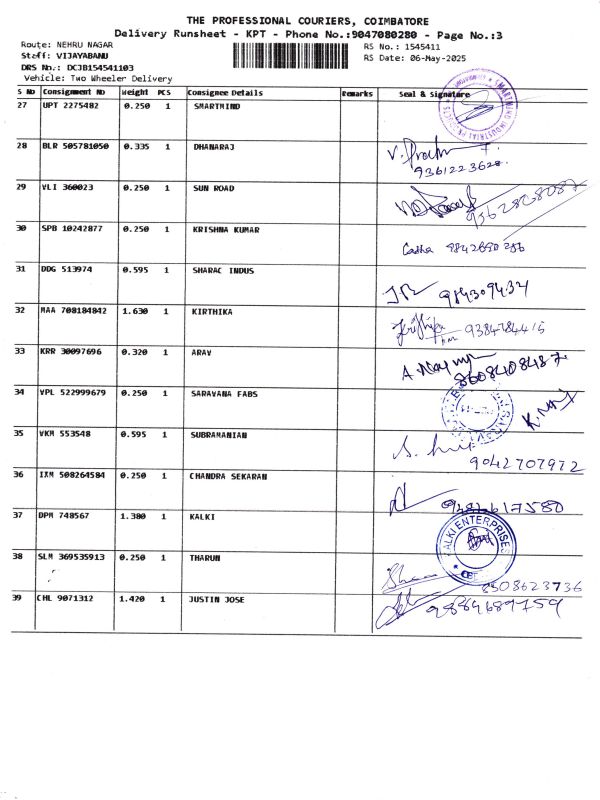 THE PROFESSIONAL COURIERS, COIMBATORE
Delivery Runsheet - KPT - Phone No.:9047080280 - Page No.:3
Route: NEHRU NAGAR
Staff: VIJAYABANU
DRS No.: DCJB154541103
Vehicle: Two Wheeler Delivery
RS No.: 1545411
RS Date: 06-May-2025
S No Consignment No Weight PCS Consignee Details Remarks Seal & Signature
27 UPT 2275482 0.250 1 SMARTMIND
28 BLR 505781050 0.335 1 DHANARAJ
9361223628
29 VLI 360023 0.250 1 SUN ROAD
9362868087
30 SPB 10242877 0.250 1 KRISHNA KUMAR
31 DDG 513974 0.595 1 SHARAC INDUS
984309434
32 MAA 708184842 1.630 1 KIRTHIKA
9384784415
33 KRR 30097696 0.320 1 ARAV
8608408487
34 VPL 522999679 0.250 1 SARAVANA FABS
35 VKM 553548 0.595 1 SUBRAMANIAN
9042707972
36 IXM 508264584 0.250 1 CHANDRA SEKARAN
37 DPM 748567 1.380 1 KALKI
KALKI ENTERPRISES
38 SLM 369535913 0.250 1 THARUN
8508623736
39 CHL 9071312 1.420 1 JUSTIN JOSE
9884689759